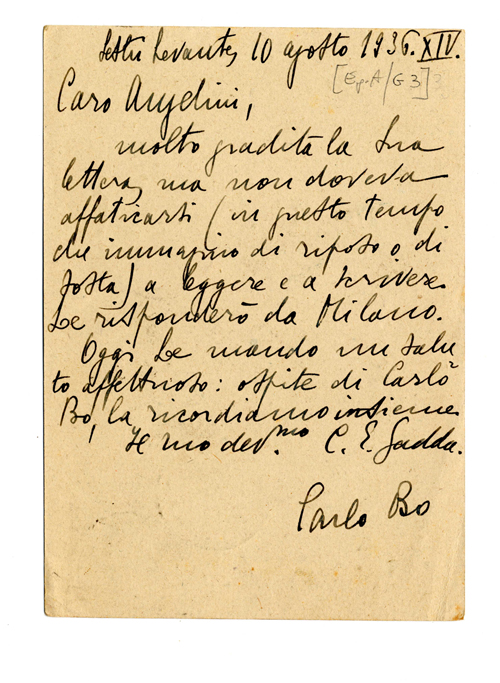 Sestri Levante, 10 agosto 1936. XIV.
[Ep. A/G 3]
Caro Angelini,
molto gradita la Sua
lettera, ma non doveva
affaticarsi (in questo tempo
che immagino di riposo o di
sosta) a leggere e a scrivere.
Le risponderò da Milano.
Oggi Le mando un salu
to affettuoso: ospite di Carlo
Bo, la ricordiamo insieme.
Il suo dev.mo C. E. Gadda.
Carlo Bo